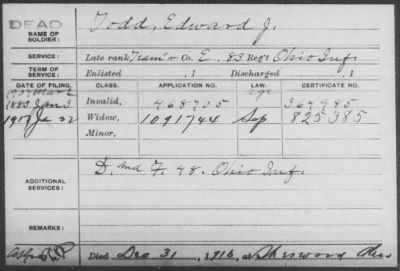 DEAD
NAME OF SOLDIER: Todd, Edward J.
SERVICE: Late rank, Team'r Co. E, 83 Reg't Ohio Inf.
TERM OF SERVICE: Enlisted , 1 Discharged , 1
DATE OF FILING. CLASS. APPLICATION NO. LAW. CERTIFICATE NO.
1907 Mar 2 Age
1883 Jan 3 Invalid, 468705 364985
1917 22 Widow, 1091744 Sep 825385
Minor,
ADDITIONAL SERVICES: D. and F. 48. Ohio Inf.
REMARKS:
Died Dec 31, 1916, at Sherwood Ohio